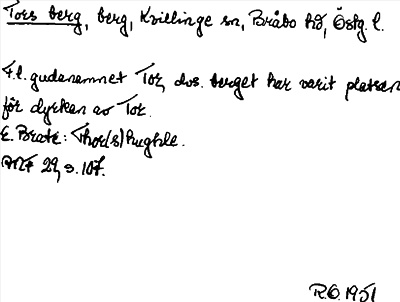 Tors berg, berg, Kvillinge sn, Bråbo hd, Östg. l.
F.l. gudanamnet Tor, dvs. berget har varit platsen
för dyrkan av Tor.
E. Brate: Thor(s)hughle.
ANF 29, s. 107.
R.O. 1951